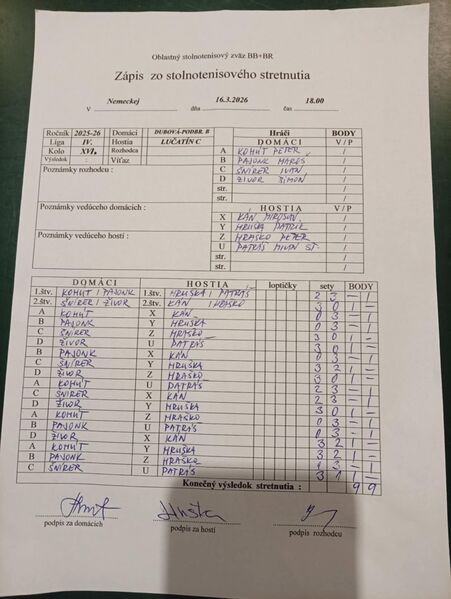 Oblastný stolnotenisový zväz BB+BR
Zápis zo stolnotenisového stretnutia
V Nemeckej dňa 16.3.2026 čas 18.00
Ročník 2025-26 Domáci DUBOVÁ-PODBR. B Hráči BODY
Liga IV. Hostia LUČATÍN C DOMÁCI V / P
Kolo XVI. Rozhodca A KOMUT PETER /
Výsledok : Víťaz B PAJONK MAROŠ /
Poznámky rozhodcu : C ŠNIRER IVAN /
D ŽIVOR ŠIMON /
str. /
str. /
Poznámky vedúceho domácich : HOSTIA V / P
X KÁN MIROSLAV /
Y HRUŠKA PATRIK /
Poznámky vedúceho hostí : Z HRAŠKO PETER /
U PATRÁŠ MILAN ST. /
str. /
str. /
DOMÁCI HOSTIA loptičky sety BODY
1.štv. KOMUT / PAJONK 1.štv. HRUŠKA / PATRÁŠ 2 3 – 1
2.štv. ŠNIRER / ŽIVOR 2.štv. KÁN / HRAŠKO 3 0 1 –
A KOMUT X KÁN 0 3 – 1
B PAJONK Y HRUŠKA 0 3 – 1
C ŠNIRER Z HRAŠKO 3 0 1 –
D ŽIVOR U PATRÁŠ 3 0 1 –
B PAJONK X KÁN 0 3 – 1
C ŠNIRER Y HRUŠKA 3 2 1 –
D ŽIVOR Z HRAŠKO 3 0 1 –
A KOMUT U PATRÁŠ 2 3 – 1
C ŠNIRER X KÁN 2 3 – 1
D ŽIVOR Y HRUŠKA 3 0 1 –
A KOMUT Z HRAŠKO 0 3 – 1
B PAJONK U PATRÁŠ 0 3 – 1
D ŽIVOR X KÁN 3 2 1 –
A KOMUT Y HRUŠKA 3 2 1 –
B PAJONK Z HRAŠKO 1 3 – 1
C ŠNIRER U PATRÁŠ 3 1 1 –
Konečný výsledok stretnutia : 9 9
podpis za domácich podpis za hostí podpis rozhodcu